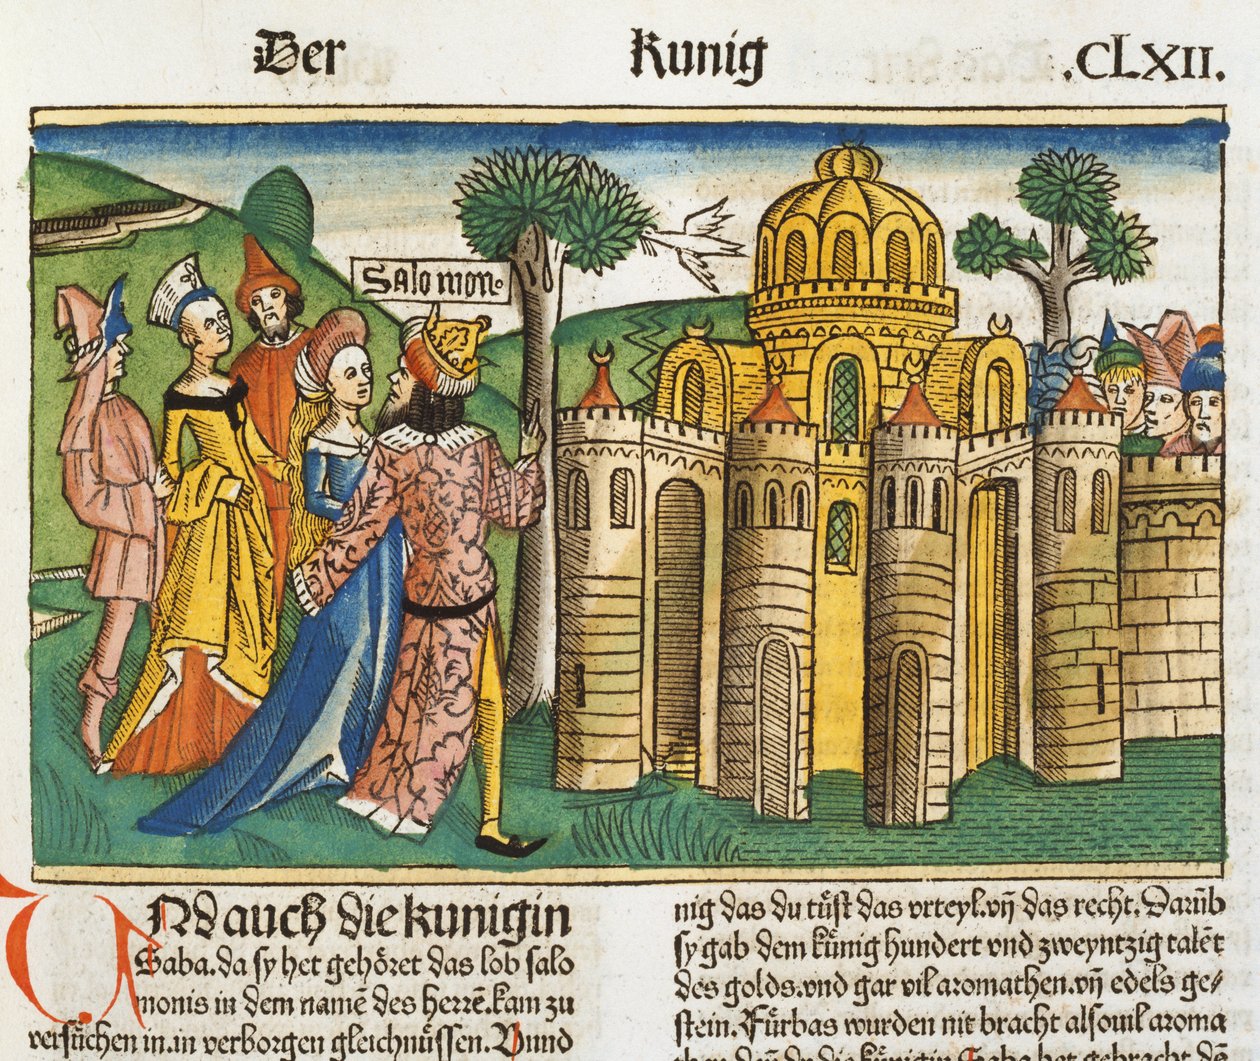 Der Kunig .CLXII.
Salomon.
VNd auch die kunigin
Saba. da sy het gehöret das lob salo
monis in dem namē des herrē. kam zu
versůchen in. in verborgen gleichnůssen. Vnnd
nig das du tůst das vrteyl. vn̄ das recht. Darūb
sy gab dem kůnig hundert vnd zweyntzig talēt
des golds. vnd gar vil aromathen. vn̄ edels ge⸗
stein. Fůrbas wurden nit bracht alsouil aroma